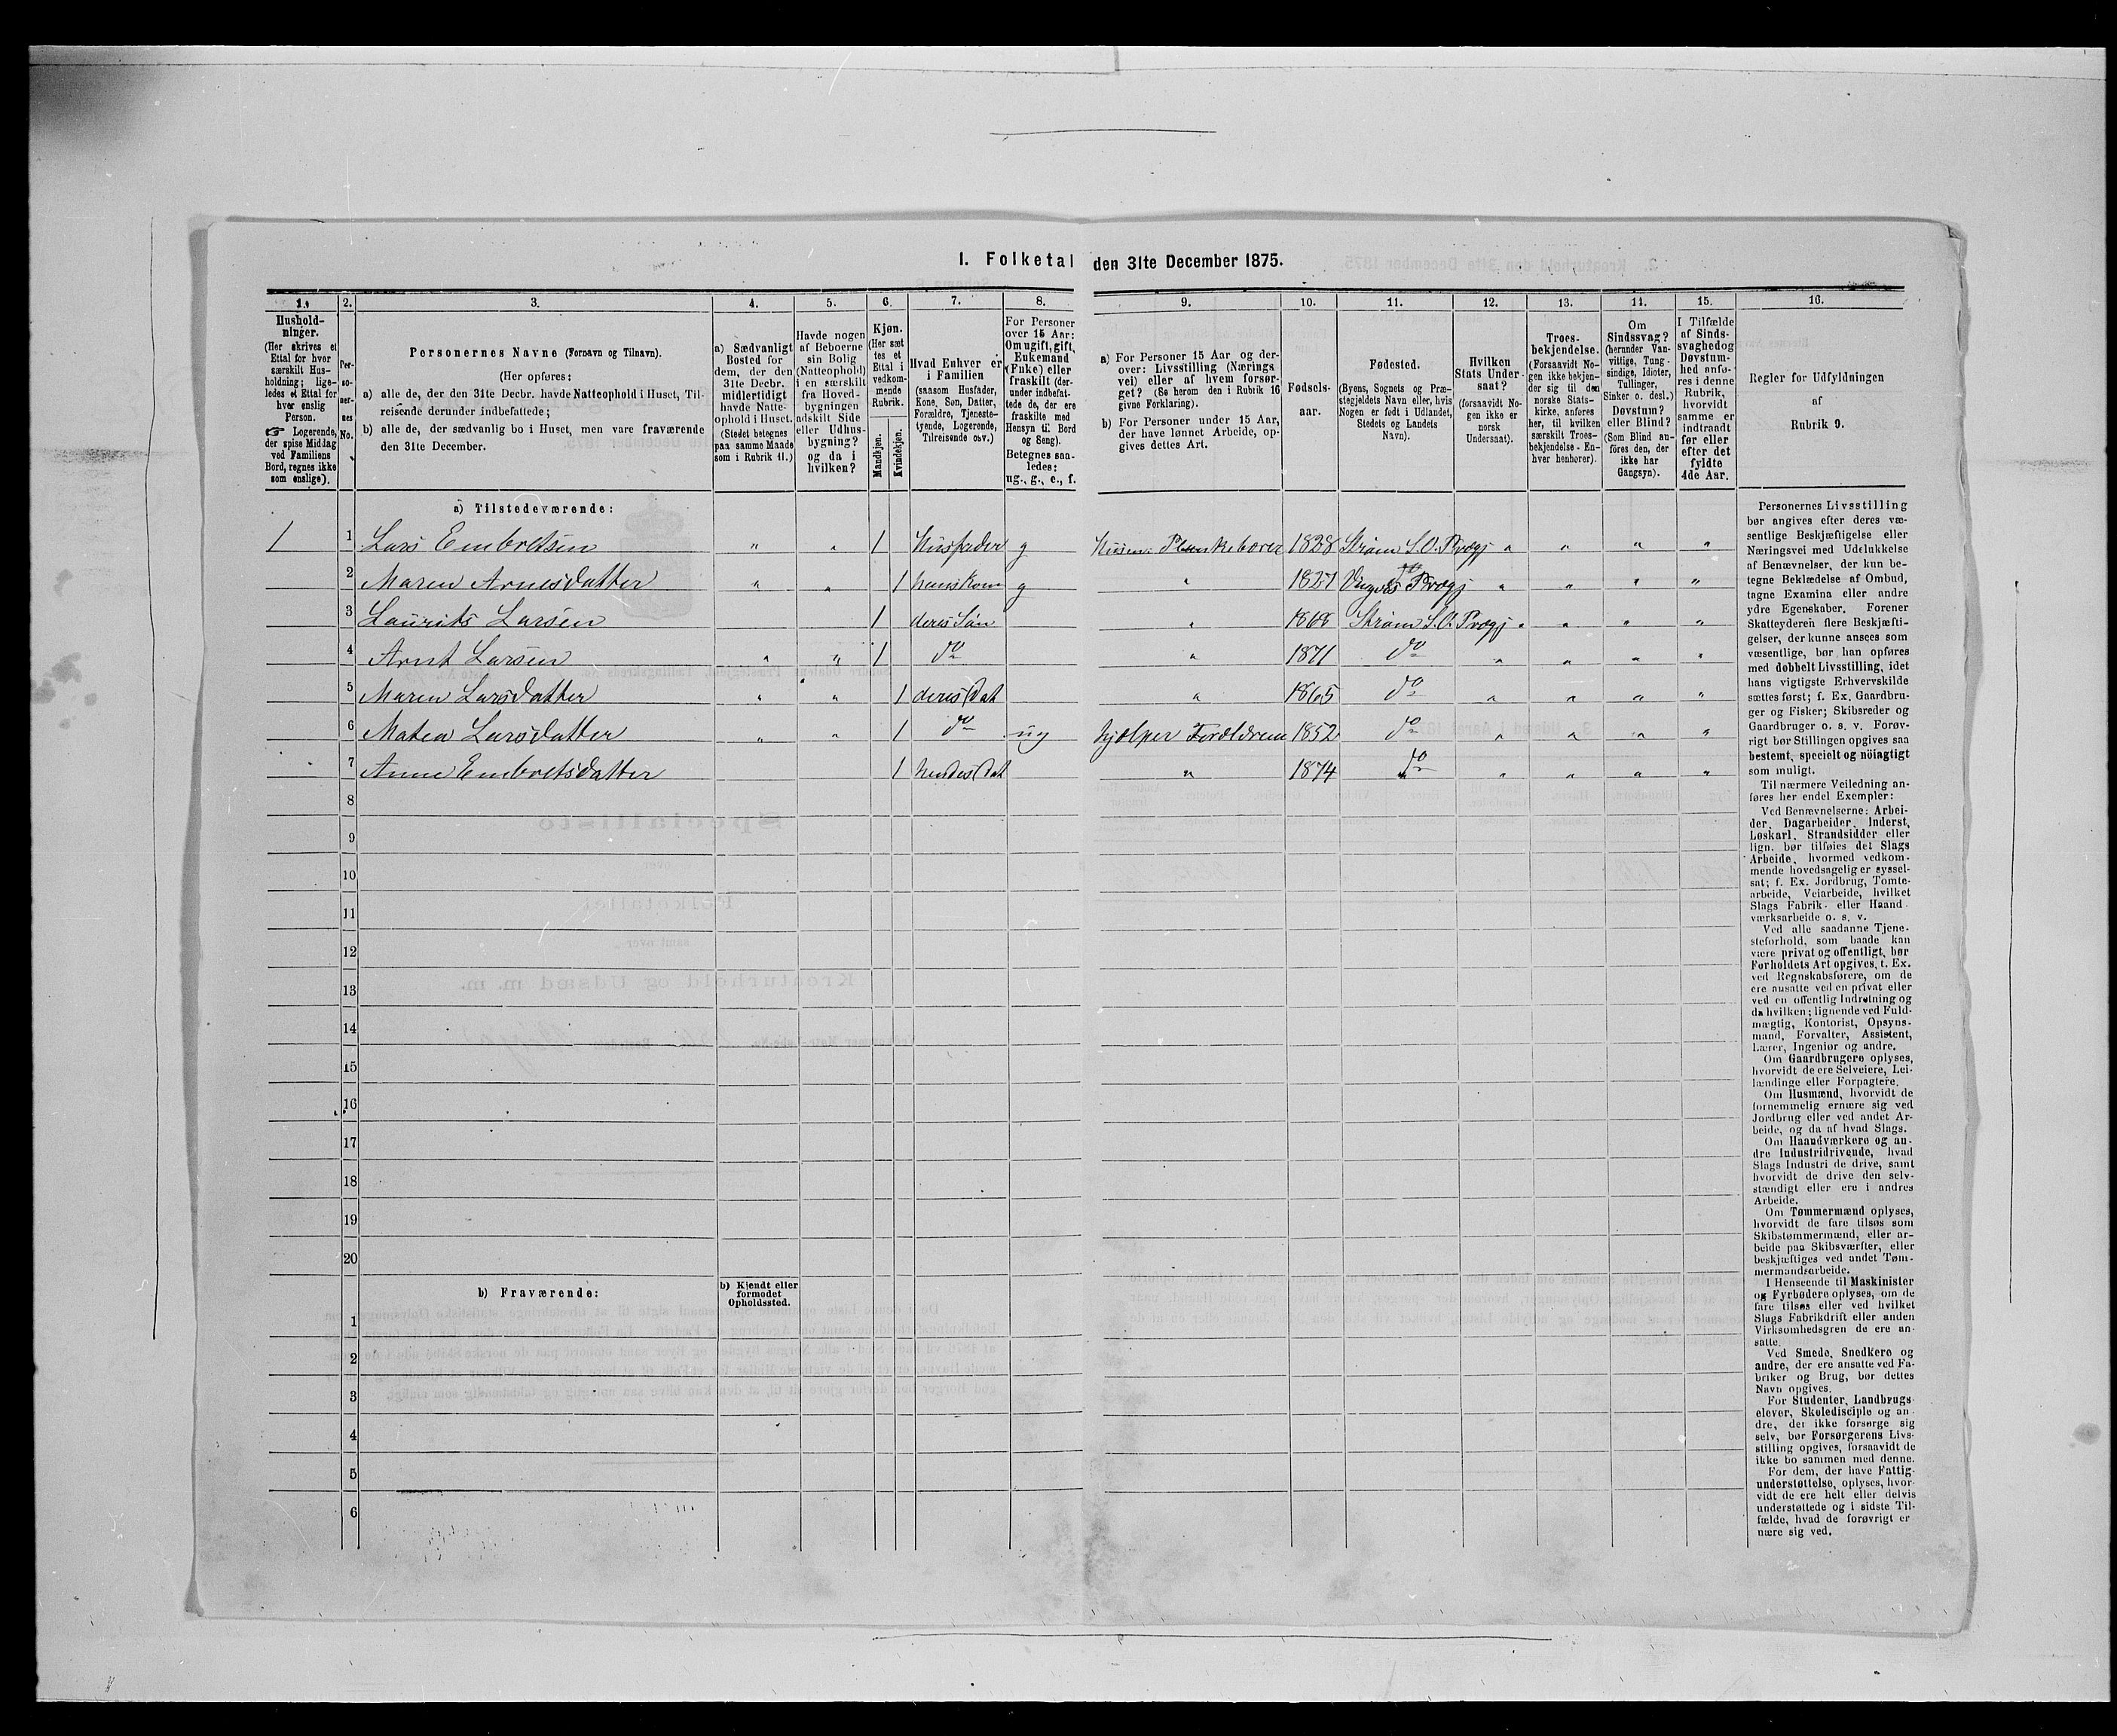 1. Folketal den 31te December 1875.
1. 2. 3. 4. 5. 6. 7. 8. 9. 10. 11. 12. 13. 14. 15. 16.
Hushold-
ninger.
(Her skrives et
Ettal for hver
særskilt Hus-
holdning; lige-
ledes et Ettal for
hver enslig
Person.
☞ Logerende,
der spise Middag
ved Familiens
Bord, regnes ikke
som enslige).
Per-
so-
ner-
nes
No.
Personernes Navne (Fornavn og Tilnavn).
(Her opføres:
a) alle de, der den 31te Decbr. havde Natteophold i Huset, Til-
reisende derunder indbefattede;
b) alle de, der sædvanlig bo i Huset, men vare fraværende
den 31te December.
a) Sædvanligt
Bosted for
dem, der den
31te Decbr.
midlertidigt
havde Natte-
ophold i Huset.
(Stedet betegnes
paa samme Maade
som i Rubrik 11.)
Havde nogen
af Beboerne
sin Bolig
(Natteophold)
i en særskilt
fra Hoved-
bygningen
adskilt Side
eller Udhus-
bygning?
og da i
hvilken?
Kjøn.
(Her sæt
tes et
Ettal i
vedkom-
mende
Rubrik.
Mandkjøn.
Kvindekjøn.
Hvad Enhver er
i Familien
(saasom Husfader,
Kone, Søn, Datter,
Forældre, Tjeneste-
tyende, Logerende,
Tilreisende osv.)
For Personer
over 15 Aar:
Om ugift, gift,
Enkemand
(Enke) eller
fraskilt (der-
under indbefat-
tede de, der ere
fraskilte med
Hensyn til Bord
og Seng).
Betegnes saa-
ledes:
ug., g., e., f.
a) For Personer 15 Aar og der-
over: Livsstilling (Nærings
vei) eller af hvem forsør-
get? (Se herom den i Rubrik 16
givne Forklaring).
b) For Personer under 15 Aar,
der have lønnet Arbeide, op-
gives dettes Art.
Fødsels-
aar.
Fødested.
(Byens, Sognets og Præ-
stegjeldets Navn eller, hvis
Nogen er født i Udlandet,
Stedets og Landets
Navn).
Hvilken
Stats Under-
saat?
(forsaavidt No-
gen ikke er
norsk
Undersaat).
Troes-
bekjendelse.
(Forsaavidt No-
gen ikke bekjen-
der sig til den
norske Stats-
kirke, anføres
her, til hvilken
særskilt Troes-
bekjendelse - En-
hver henhører).
Om
Sindssvag?
(herunder Van-
vittige, Tung-
sindige, Idioter,
Tullinger,
Sinker o. desl.)
Døvstum?
eller Blind?
(Som Blind an-
føres den, der
ikke har
Gangsyn).
I Tilfælde
af Sinds-
svaghed og
Døvstum-
hed anfø-
res i denne
Rubrik,
hvorvidt
samme er
indtraadt
før eller
efter det
fyldte
4de Aar.
Regler for Udfyldningen
af
Rubrik 9.
a) Tilstedeværende:
1 1 Lars Embretsen " " 1 Husfader g Plankebærer 1828 Strøm S.O. Prægj " " " "
2 Maren Arnesdatter " " 1 hans Kone g " 1827 Vinger Prægj " " " "
3 Laurits Larsen 1 deres Søn " 1868 Strøm S.O. Prægj " " " "
4 Arnt Larsen " " 1 do " 1871 do " " " "
5 Maren Larsdatter " " 1 deres Dat " 1865 do " " " "
6 Matea Larsdatter " " 1 do ug hjelper Foreldrene 1852 do " " " "
7 Anne Embretsdatter 1 hendes Dat " 1874 do " " " "
8
9
10
11
12
13
14
15
16
17
18
19
20
b) Fraværende:
b) Kjendt eller
formodet
Opholdssted.
1
2
3
4
5
6
Personernes Livsstilling
bør angives efter deres væ-
sentlige Beskjæftigelse eller
Næringsvei med Udelukkelse
af Benævnelser, der kun be-
tegne Beklædelse af Ombud,
tagne Examina eller andre
ydre Egenskaber. Forener
Skatteyderen flere Beskjæfti-
gelser, der kunne ansees som
væsentlige, bør han opføres
med dobbelt Livsstilling, idet
hans vigtigste Erhvervskilde
sættes først; f. Ex. Gaardbru-
ger og Fisker; Skibsreder og
Gaardbruger o. s. v. Forøv-
rigt bør Stillingen opgives saa
bestemt, specielt og nöiagtigt
som muligt.
Til nærmere Veiledning an-
føres her endel Exempler:
Ved Benævnelserne: Arbei-
der, Dagarbeider, Inderst,
Løskarl, Strandsidder eller
lign. bør tilføies det Slags
Arbeide, hvormed vedkom-
mende hovedsagelig er syssel-
sat; f. Ex. Jordbrug, Tomte-
arbeide, Veiarbeide, hvilket
Slags Fabrik- eller Haand-
værksarbeide o. s. v.
Ved alle saadanne Tjene-
steforhold, som baade kan
være privat og offentligt, bør
Forholdets Art opgives, f. Ex.
ved Regnskabsførere, om de
ere ansatte ved en privat eller
ved en offentlig Indretning og
da hvilken; lignende ved Fuld-
mægtig, Kontorist, Opsyns-
mand, Forvalter, Assistent,
Lærer, Ingeniør og andre.
Om Gaardbrugere oplyses,
hvorvidt de ere Selveiere, Lei-
lændinge eller Forpagtere.
Om Husmænd, hvorvidt de
fornemmelig ernære sig ved
Jordbrug eller ved andet Ar-
beide, og da af hvad Slags.
Om Haandværkere og an-
dre Industridrivende, hvad
Slags Industri de drive, samt
hvorvidt de drive den selv-
stændigt eller ere i andres
Arbeide.
Om Tømmermænd oplyses,
hvorvidt de fare tilsøs som
Skibstømmermænd, eller ar-
beide paa Skibsværfter, eller
beskjæftiges ved andet Tøm-
mermandsarbeide.
I Henseende til Maskinister
og Fyrbødere oplyses, om de
fare tilsøs eller ved hvilket
Slags Fabrikdrift eller anden
Virksomhedsgren de ere an-
satte.
Ved Smede, Snedkere og
andre, der ere ansatte ved Fa-
briker og Brug, bør dettes
Navn opgives.
For Studenter, Landbrugs-
elever, Skoledisciple og an-
dre, der ikke forsørge sig
selv, bør Forsørgerens Livs-
stilling opgives, forsaavidt de
ikke bo sammen med denne.
For dem, der have Fattig-
understøttelse, oplyses, hvor-
vidt de ere helt eller delvis
understøttede og i sidste Til-
fælde, hvad de forøvrigt er
nære sig ved.